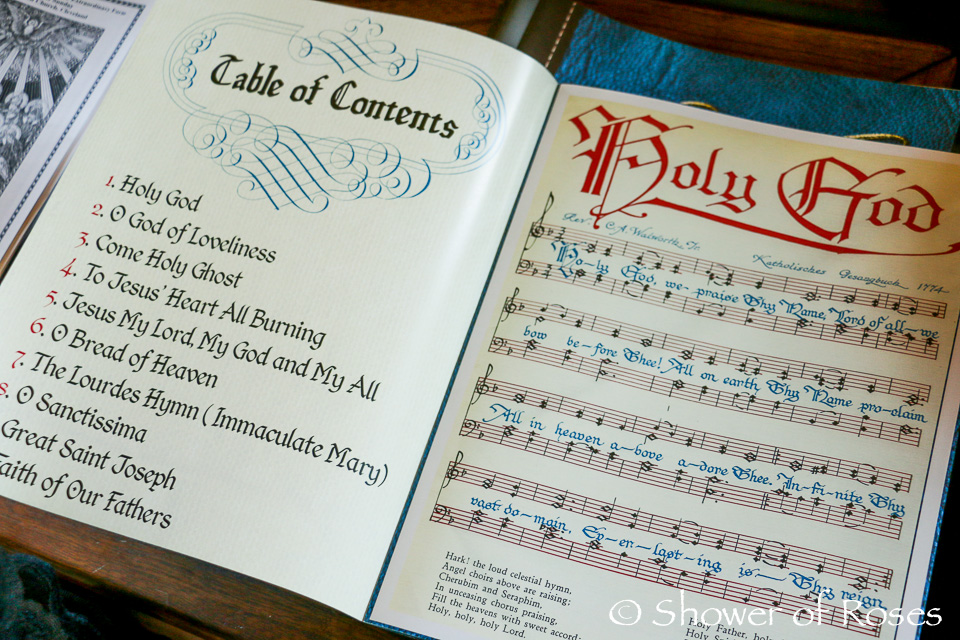 Extraordinary Form
Church, Cleveland
Table of Contents
1. Holy God
2. O God of Loveliness
3. Come Holy Ghost
4. To Jesus' Heart All Burning
5. Jesus My Lord, My God and My All
6. O Bread of Heaven
7. The Lourdes Hymn (Immaculate Mary)
8. O Sanctissima
Great Saint Joseph
Faith of Our Fathers
Holy God
Rev. C.A. Walworth, Tr.
Katholisches Gesangbuch 1774
Ho-ly God, we praise Thy Name, Lord of all we
bow be-fore Thee! All on earth Thy Name pro-claim
All in heaven a-bove a-dore Thee. In-fi-nite Thy
vast do-main, Ev-er-last-ing is Thy reign.
Hark! the loud celestial hymn,
Angel choirs above are raising;
Cherubim and Seraphim,
In unceasing chorus praising,
Fill the heavens with sweet accord:
Holy, holy, holy Lord.
Holy Father,
© Shower of Roses